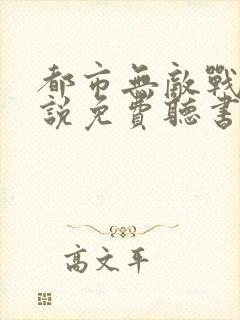 都市無敵戰
說免費聽書
高文平